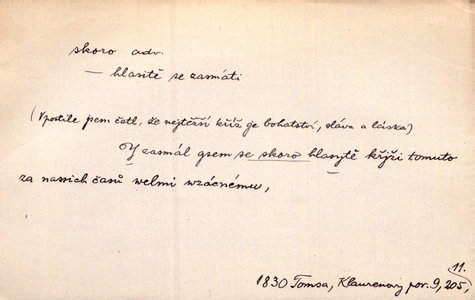 skoro adv.
— hlasitě se zasmáti
(V postile jsem četl, že nejtěžší kříž je bohatství, sláva a láska)
Y zasmál gsem se skoro hlasytě křjži tomuto
za nassich časů welmi wzácnému,
11.
1830 Tomsa, Klaurenovy por. 9, 205,